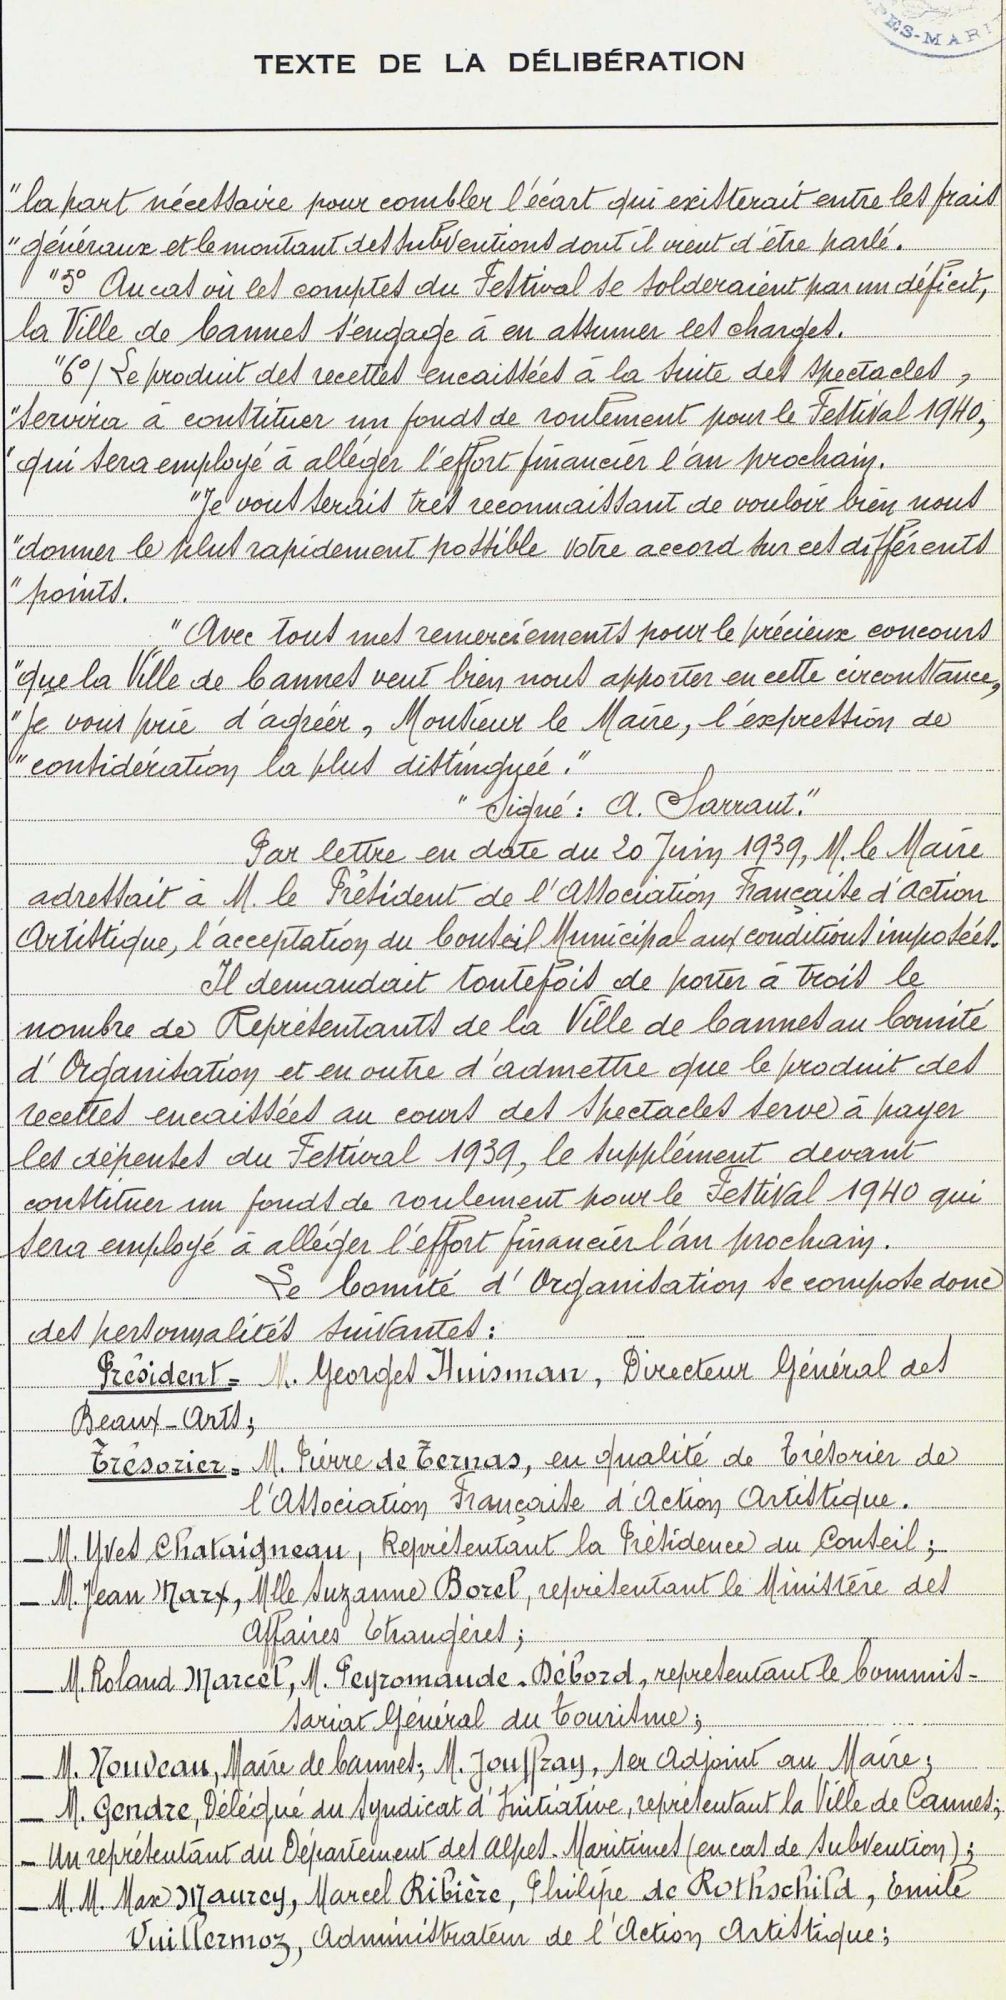 PES-MARI
TEXTE DE LA DÉLIBÉRATION
"la part nécessaire pour combler l'écart qui existerait entre les frais
"généraux et le montant des subventions dont il vient d'être parlé.
"5° Au cas où les comptes du Festival se solderaient par un déficit,
la Ville de Cannes s'engage à en assumer les charges.
"6°/ Le produit des recettes encaissées à la suite des spectacles,
"servira à constituer un fonds de roulement pour le Festival 1940,
"qui sera employé à alléger l'effort financier l'an prochain.
"Je vous serais très reconnaissant de vouloir bien nous
"donner le plus rapidement possible votre accord sur ces différents
"points.
"Avec tous mes remerciements pour le précieux concours
"que la Ville de Cannes veut bien nous apporter en cette circonstance,
"je vous prie d'agréer, Monsieur le Maire, l'expression de
"considération la plus distinguée."
"Signé: A. Sarraut."
Par lettre en date du 20 Juin 1939, M. le Maire
adressait à M. le Président de l'Association Française d'Action
Artistique, l'acceptation du Conseil Municipal aux conditions imposées.
Il demandait toutefois de porter à trois le
nombre de Représentants de la Ville de Cannes au Comité
d'Organisation et en outre d'admettre que le produit des
recettes encaissées au cours des spectacles serve à payer
les dépenses du Festival 1939, le supplément devant
constituer un fonds de roulement pour le Festival 1940 qui
sera employé à alléger l'effort financier l'an prochain.
Le Comité d'Organisation se compose donc
des personnalités suivantes:
Président= M. Georges Huisman, Directeur Général des
Beaux-Arts;
Trésorier= M. Pierre de Ternas, en qualité de Trésorier de
l'Association Française d'Action Artistique.
— M. Yves Chataigneau, Représentant la Présidence du Conseil;
— M. Jean Marx, Mlle Suzanne Borel, représentant le Ministère des
Affaires Etrangères;
— M. Roland Marcel, M. Peyromaude-Débord, représentant le Commis-
sariat Général du Tourisme;
— M. Nouveau, Maire de Cannes; M. Jouffray, 1er Adjoint au Maire;
— M. Gendre, Délégué du Syndicat d'Initiative, représentant la Ville de Cannes;
— Un représentant du Département des Alpes-Maritimes (en cas de subvention);
— M.M. Max Maurey, Marcel Ribière, Philipe de Rothschild, Emile
Vuillermoz, Administrateur de l'Action Artistique;